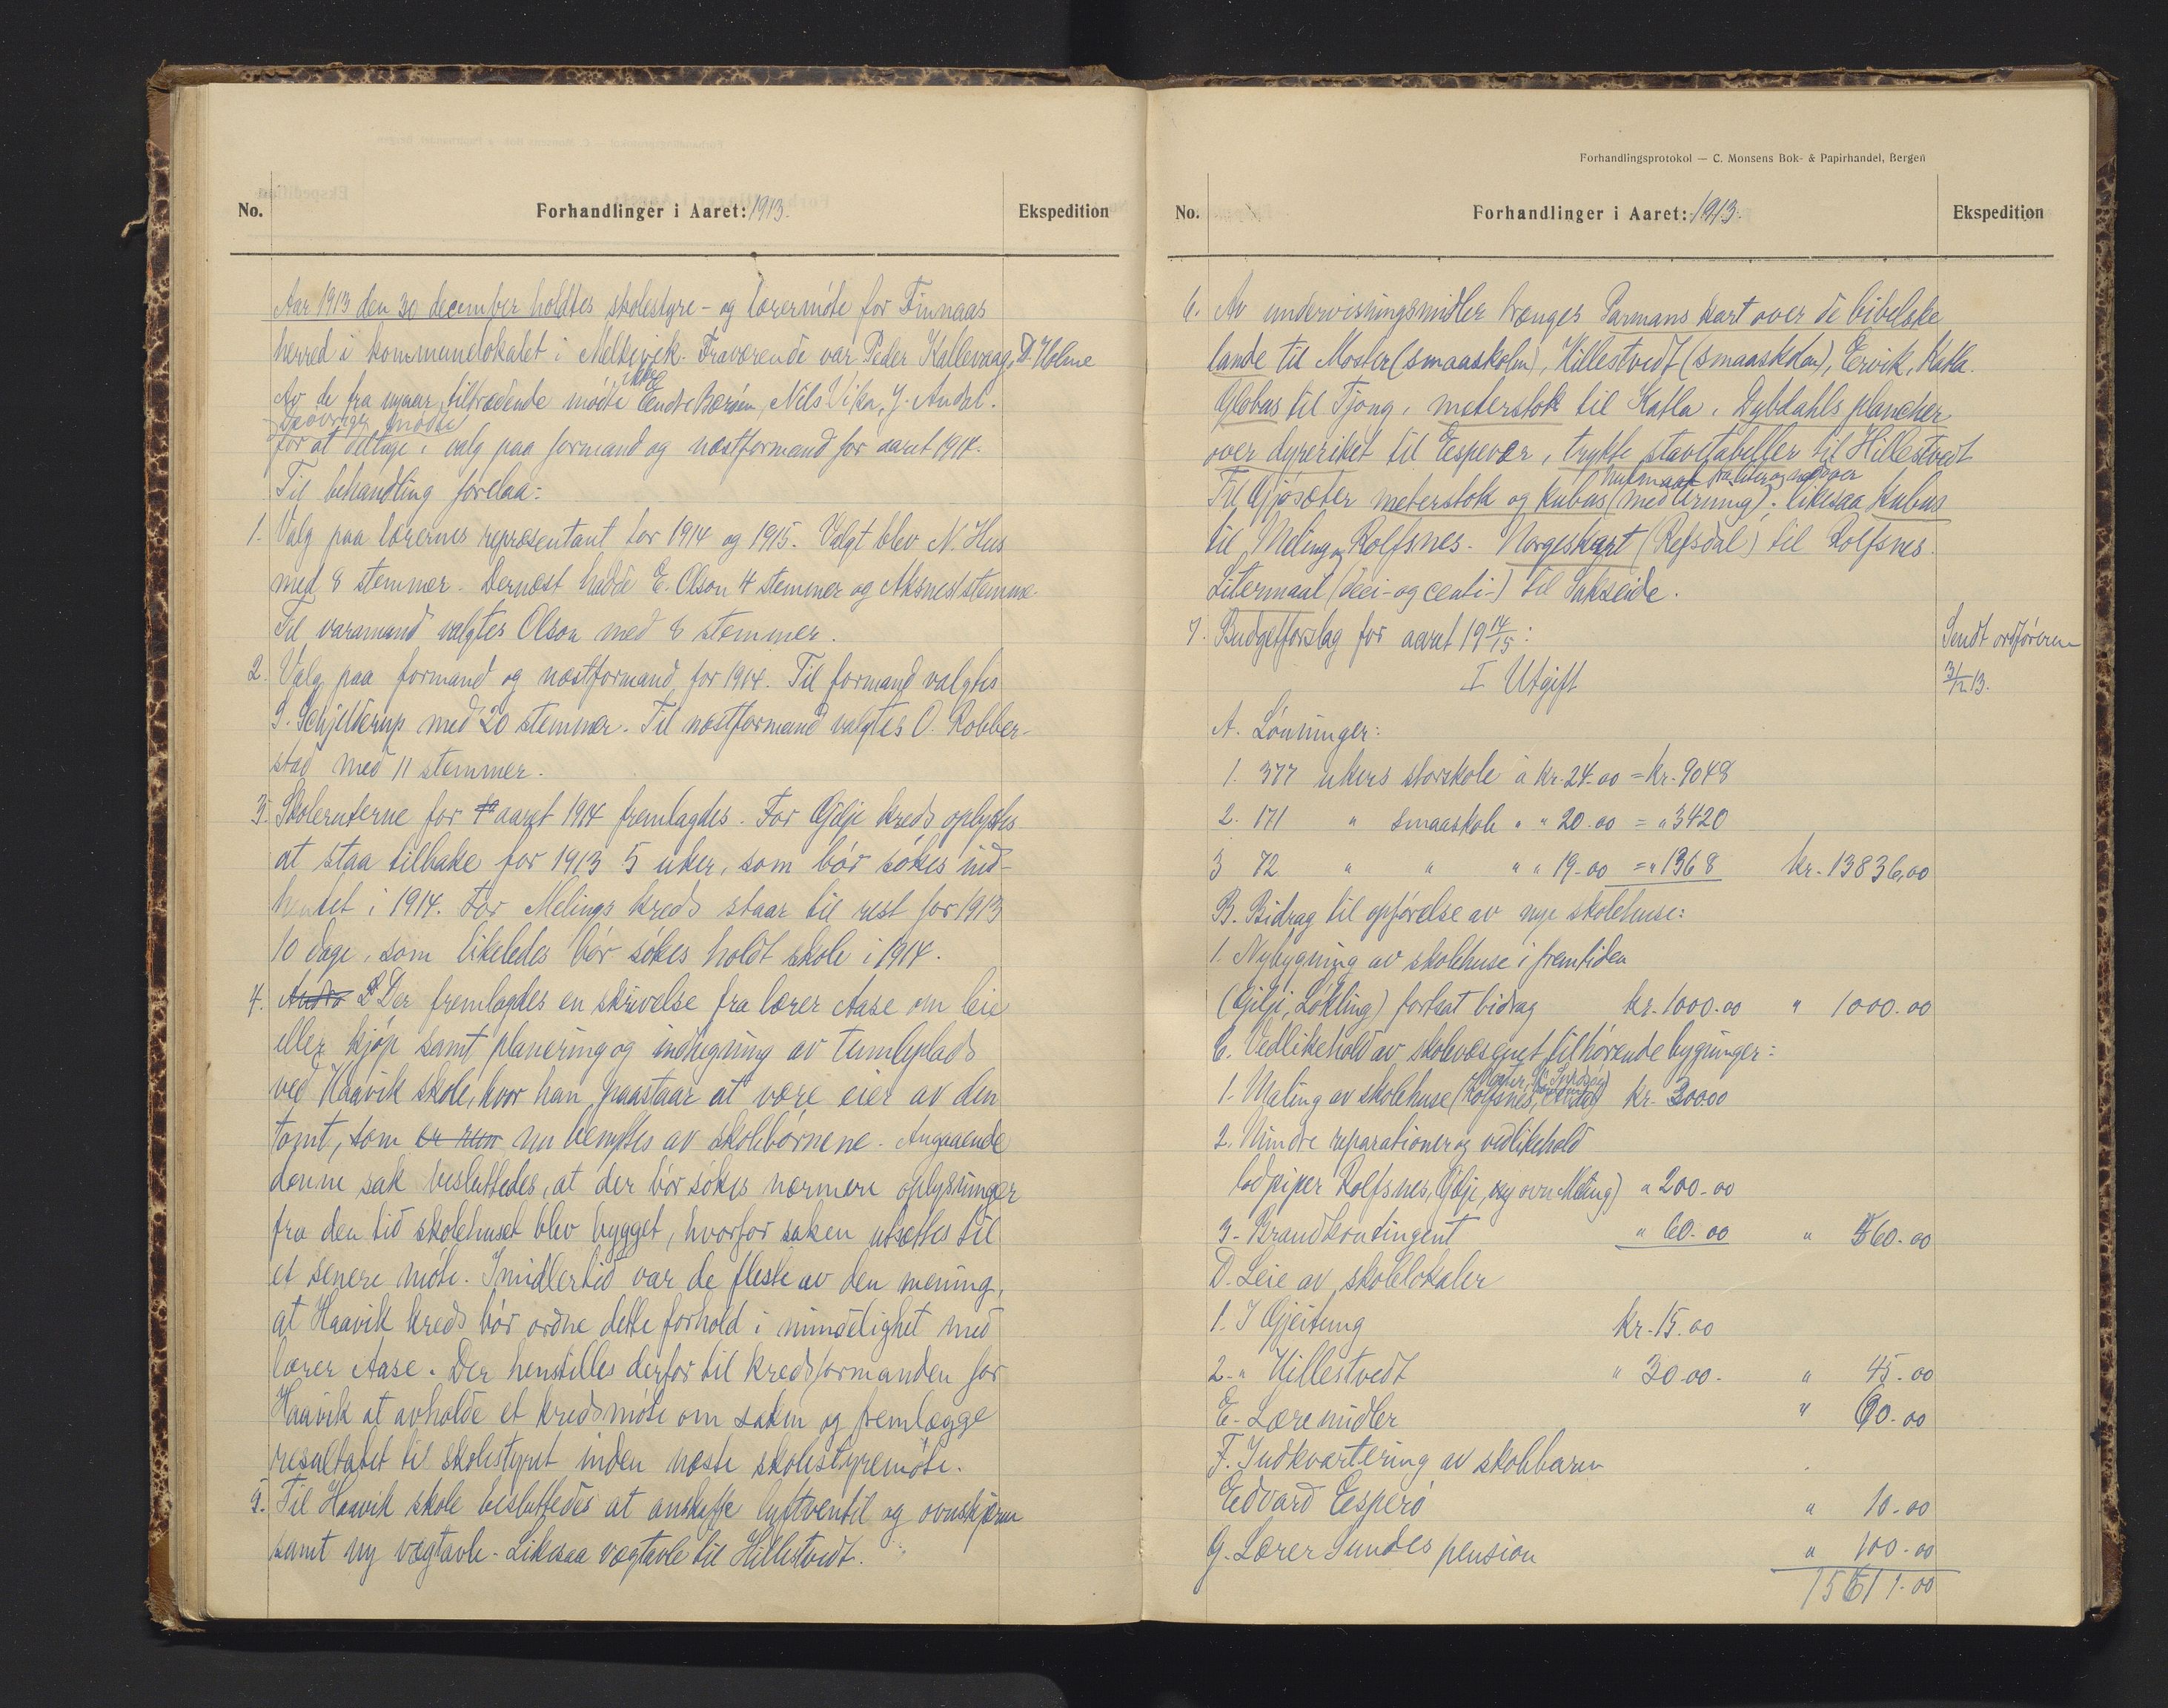 No. Forhandlinger i Aaret: 1913. Ekspedition
Aar 1913 den 30 december holdtes skolestyre- og lærermøte for Finnaas
herred i kommunelokalet i Melkevik. Fraværende var Peder Kallevaag, D. Holme
Av de fra nyaar tiltrædende mødte ikke Endre Bærøen, Nils Vika, J. Andal.
De øvrige mødte
for at deltage i valg paa formand og næstformand for aaret 1914.
Til behandling forelaa:
1. Valg paa lærernes representant for 1914 og 1915. Valgt blev N. Hus
med 8 stemmer. Dernæst hadde E. Olson 4 stemmer og Aksnes 1 stemme.
Til varamand valgtes Olson med 8 stemmer.
2. Valg paa formand og næstformand for 1914. Til formand valgtes
S. Schjelderup med 20 stemmer. Til næstformand valgtes O. Robber-
stad med 11 stemmer.
3. Skoleruterne for aaret 1914 fremlagdes. For Gilje kreds oplystes
at staa tilbake for 1913 5 uker, som bør søkes ind-
hentet i 1914. For Melings kreds staar til rest for 1913
10 dage, som likeledes bør søkes holdt skole i 1914.
4. Der fremlagdes en skrivelse fra lærer Aase om leie
eller kjøp samt planering og indhegning av tumleplads
ved Haavik skole, hvor han paastaar at være eier av den
tomt, som nu benyttes av skolebørnene. Angaaende
denne sak besluttedes, at der bør søkes nærmere oplysninger
fra den tid skolehuset blev bygget, hvorfor saken utsættes til
et senere møte. Imidlertid var de fleste av den mening,
at Haavik kreds bør ordne dette forhold i mindelighet med
lærer Aase. Der henstilles derfor til kredsformanden for
Haavik at avholde et kredsmøte om saken og fremlægge
resultatet til skolestyret inden næste skolestyremøte.
5. Til Haavik skole besluttedes at anskaffe luftventil og ovnskjærm
samt ny vægtavle. Likesaa vægtavle til Hillestvedt.
Forhandlingsprotokol — C. Monsens Bok- & Papirhandel, Bergen
No. Forhandlinger i Aaret: 1913. Ekspedition
6. Av undervisningsmidler trænges Parmans kart over de bibelske
lande til Moster (smaaskolen), Hillestvedt (smaaskolen), Eervik, Katla.
Globus til Tjong, meterstok til Katla, Dybdahls plancher
over dyreriket til Espevær, trykte stavetabeller til Hillestvedt
Hulmaal
Til Gjøsæter meterstok og kubus (med terning); likesaa kubus
til Meling og Rolfsnes. Norgeskart (Refsdal) til Rolfsnes.
Litermaal (deci- og centi-) til Sakseide.
7. Budgetforslag for aaret 19 14/15: Sendt ordføreren
I Utgift 31/12 13.
A. Lønninger:
1. 377 ukers storskole à kr. 24.00 = kr. 9048
2. 171 " smaaskole " " 20.00 = " 3420
3 72 " " " " 19.00 = " 1368 kr. 13836,00
B. Bidrag til opførelse av nye skolehuse:
1. Nybygning av skolehuse i fremtiden
(Gilje, Løkling) fortsat bidrag kr. 1000.00 " 1000.00
C. Vedlikehold av skolevæsenet tilhørende bygninger:
1. Maling av skolehuse (Rolfsnes, kr. 300.00
2. Mindre reparationer og vedlikehold
piper Rolfsnes, Gilje, ny ovn Meling) " 200.00
3. Brandkontingent " 60.00 " 560.00
D. Leie av skolelokaler
1. I Gjeitung kr. 15.00
2. " Hillestvedt " 30.00. " 45.00
E. Læremidler " 60.00
F. Indkvartering av skolebarn
Edvard Esperø " 10.00
G. Lærer Sundes pension " 100.00
15611.00